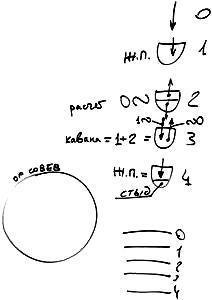 0
Ж.П. 1
расчёт 0~ 2
1~ ~0
кавана = 1+2 = 3
Ж.П. = 4
стыд
ор
0
1
2
3
4